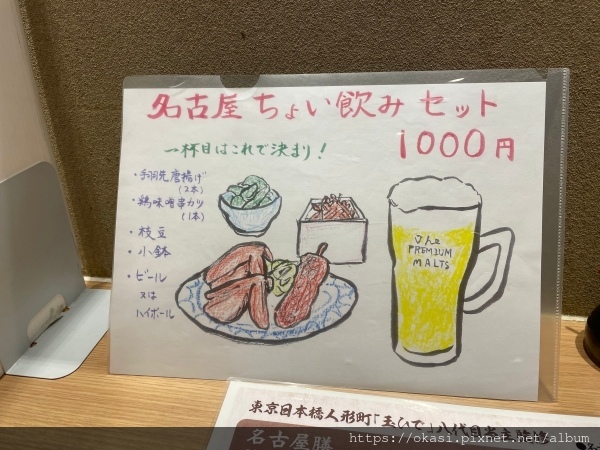 名古屋ちょい飲みセット
1000円
一杯目はこれで決まり！
・手羽先唐揚げ
(2本)
・鶏味噌串カツ
(1本)
・枝豆
・小鉢
・ビール
又は
ハイボール
The
PREMIUM
MALTS
東京日本橋人形町「玉ひで」八代目
名古屋膳
https://okasi.pixnet.net/album